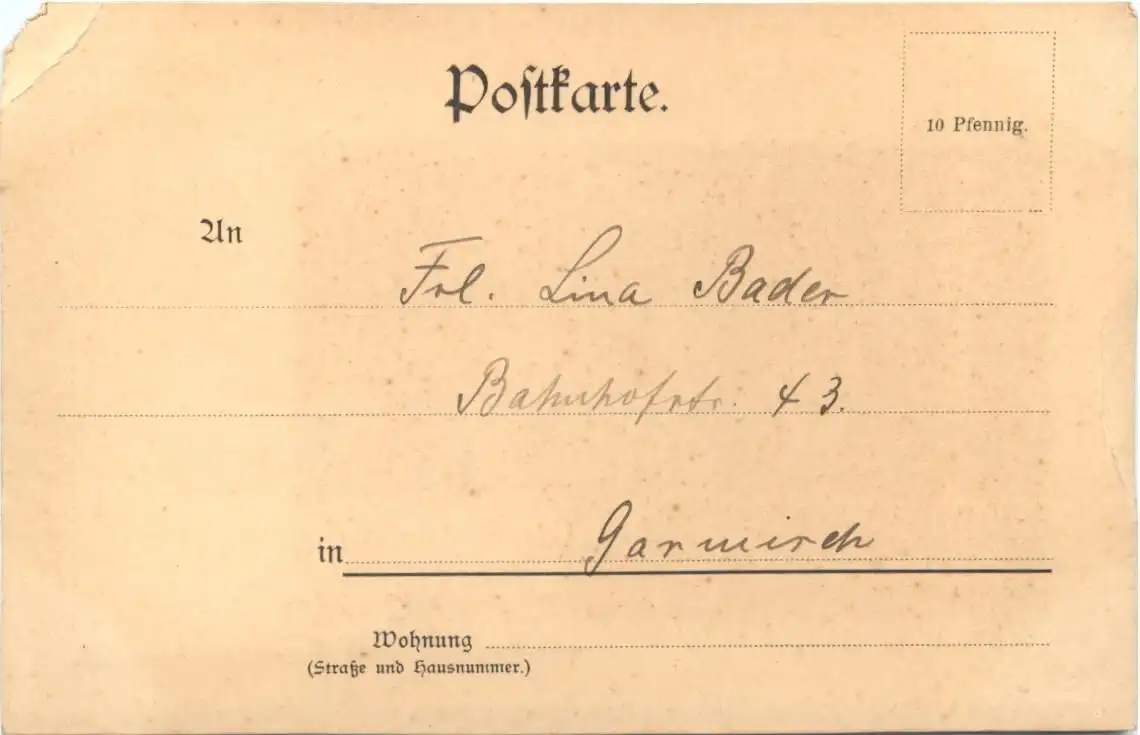 Postkarte.
10 Pfennig.
An
Frl. Lina Bader
Bahnhofstr. 43.
in Garmisch
Wohnung
(Straße und Hausnummer.)